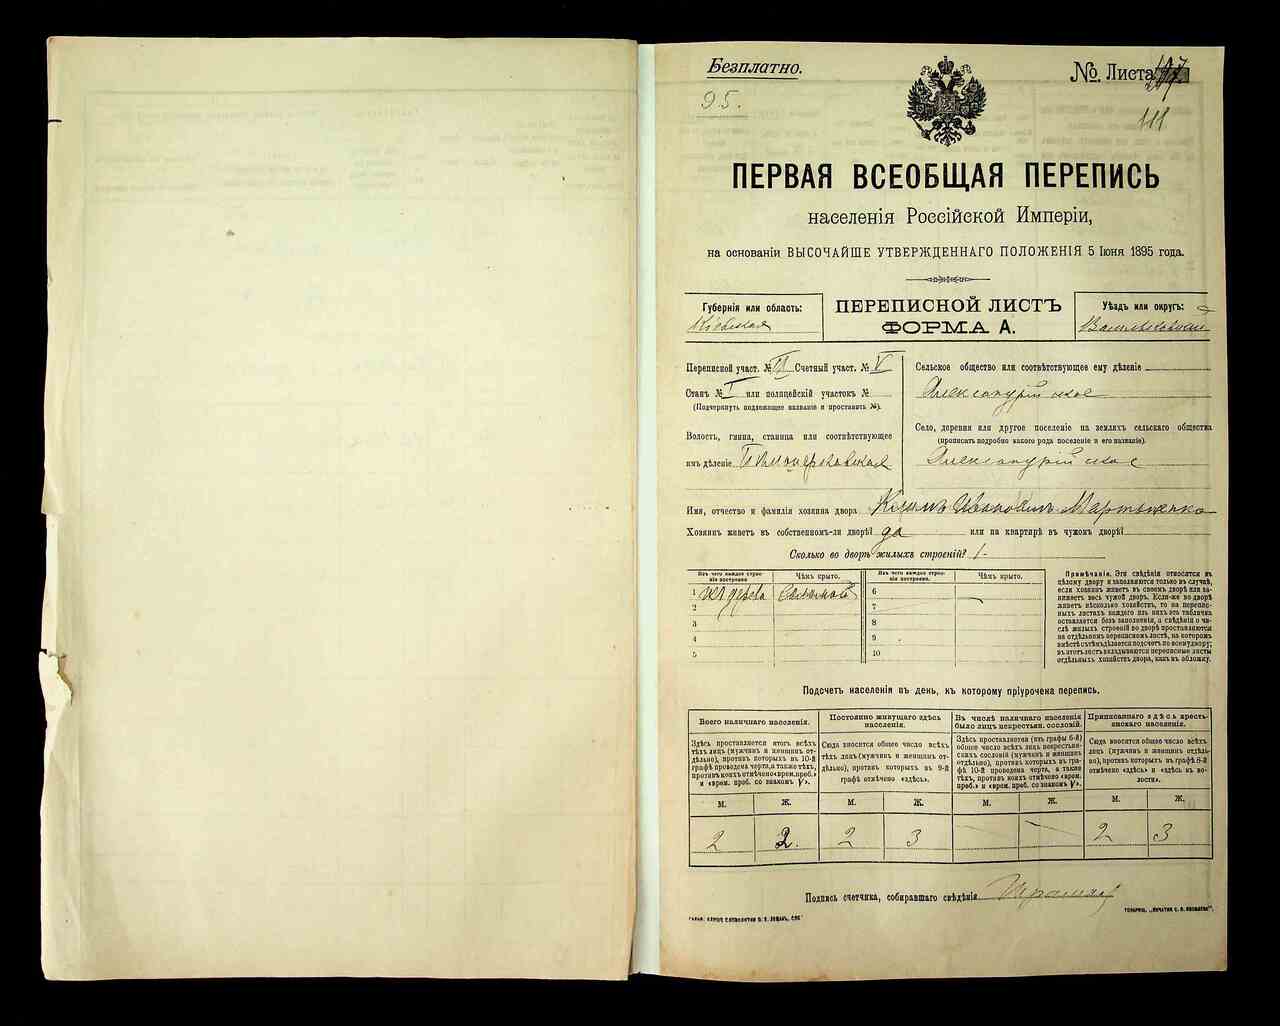 Безплатно.
№. Листа
95.
111
ПЕРВАЯ ВСЕОБЩАЯ ПЕРЕПИСЬ
населенія Россійской Имперіи,
на основаніи ВЫСОЧАЙШЕ УТВЕРЖДЕННАГО ПОЛОЖЕНІЯ 5 Іюня 1895 года.
Губернія или область:
Кіевская
ПЕРЕПИСНОЙ ЛИСТЪ
ФОРМА А.
Уѣздъ или округъ:
Васильковскій
Переписной участ. № Счетный участ. № V
Станъ № I или полицейскій участокъ №
(Подчеркнуть подлежащее названіе и проставить №).
Волость, гмина, станица или соотвѣтствующее
имъ дѣленіе
Сельское общество или соотвѣтствующее ему дѣленіе
Александрійское
Село, деревня или другое поселеніе на земляхъ сельскаго общества
(прописать подробно какого рода поселеніе и его названіе).
Александрійское
Имя, отчество и фамилія хозяина двора Климъ Ивановичъ Мартыненко
Хозяинъ живетъ въ собственномъ-ли дворѣ? да или на квартирѣ въ чужомъ дворѣ?
Сколько во дворѣ жилыхъ строеній? 1-
Изъ чего каждое строеніе построено. Чѣмъ крыто. Изъ чего каждое строеніе построено. Чѣмъ крыто.
1 изъ дерева соломой 6
2 7
3 8
4 9
5 10
Примѣчаніе. Эти свѣдѣнія относятся къ
цѣлому двору и заполняются только въ случаѣ,
если хозяинъ живетъ въ своемъ дворѣ или занимаетъ
весь чужой дворъ. Если-же во дворѣ
живетъ нѣсколько хозяйствъ, то на переписныхъ
листахъ каждаго изъ нихъ эта табличка
оставляется безъ заполненія, а свѣдѣнія о числѣ
жилыхъ строеній во дворѣ проставляются
на отдѣльномъ переписномъ листѣ, на которомъ
вмѣстѣ съ тѣмъ дѣлается подсчетъ по всему двору;
въ этотъ листъ вкладываются переписные листы
отдѣльныхъ хозяйствъ двора, какъ въ обложку.
Подсчетъ населенія въ день, къ которому пріурочена перепись.
Всего наличнаго населенія.
Здѣсь проставляется итогъ всѣхъ
тѣхъ лицъ (мужчинъ и женщинъ отдѣльно),
противъ которыхъ въ 10-й
графѣ проведена черта, а также тѣхъ,
противъ коихъ отмѣчено «врем. преб.»
и «врем. преб. со знакомъ V».
Постоянно живущаго здѣсь
населенія.
Сюда вносится общее число всѣхъ
тѣхъ лицъ (мужчинъ и женщинъ отдѣльно),
противъ которыхъ въ 9-й
графѣ отмѣчено «здѣсь».
Въ числѣ наличнаго населенія
было лицъ некрестьян. сословій.
Здѣсь проставляется (изъ графы 6-й)
общее число всѣхъ лицъ некрестьянскихъ
сословій (мужчинъ и женщинъ
отдѣльно), противъ которыхъ въ графѣ
10-й проведена черта, а также
тѣхъ, противъ коихъ отмѣчено «врем.
преб.» и «врем. преб. со знакомъ V».
Приписаннаго здѣсь крестьянскаго
населенія.
Сюда вносится общее число всѣхъ
лицъ (мужчинъ и женщинъ отдѣльно),
противъ которыхъ въ графѣ 8-й
отмѣчено «здѣсь» и «здѣсь въ волости».
М. Ж. М. Ж. М. Ж. М. Ж.
2 2. 2 3 2 3
Подпись счетчика, собиравшаго свѣдѣнія